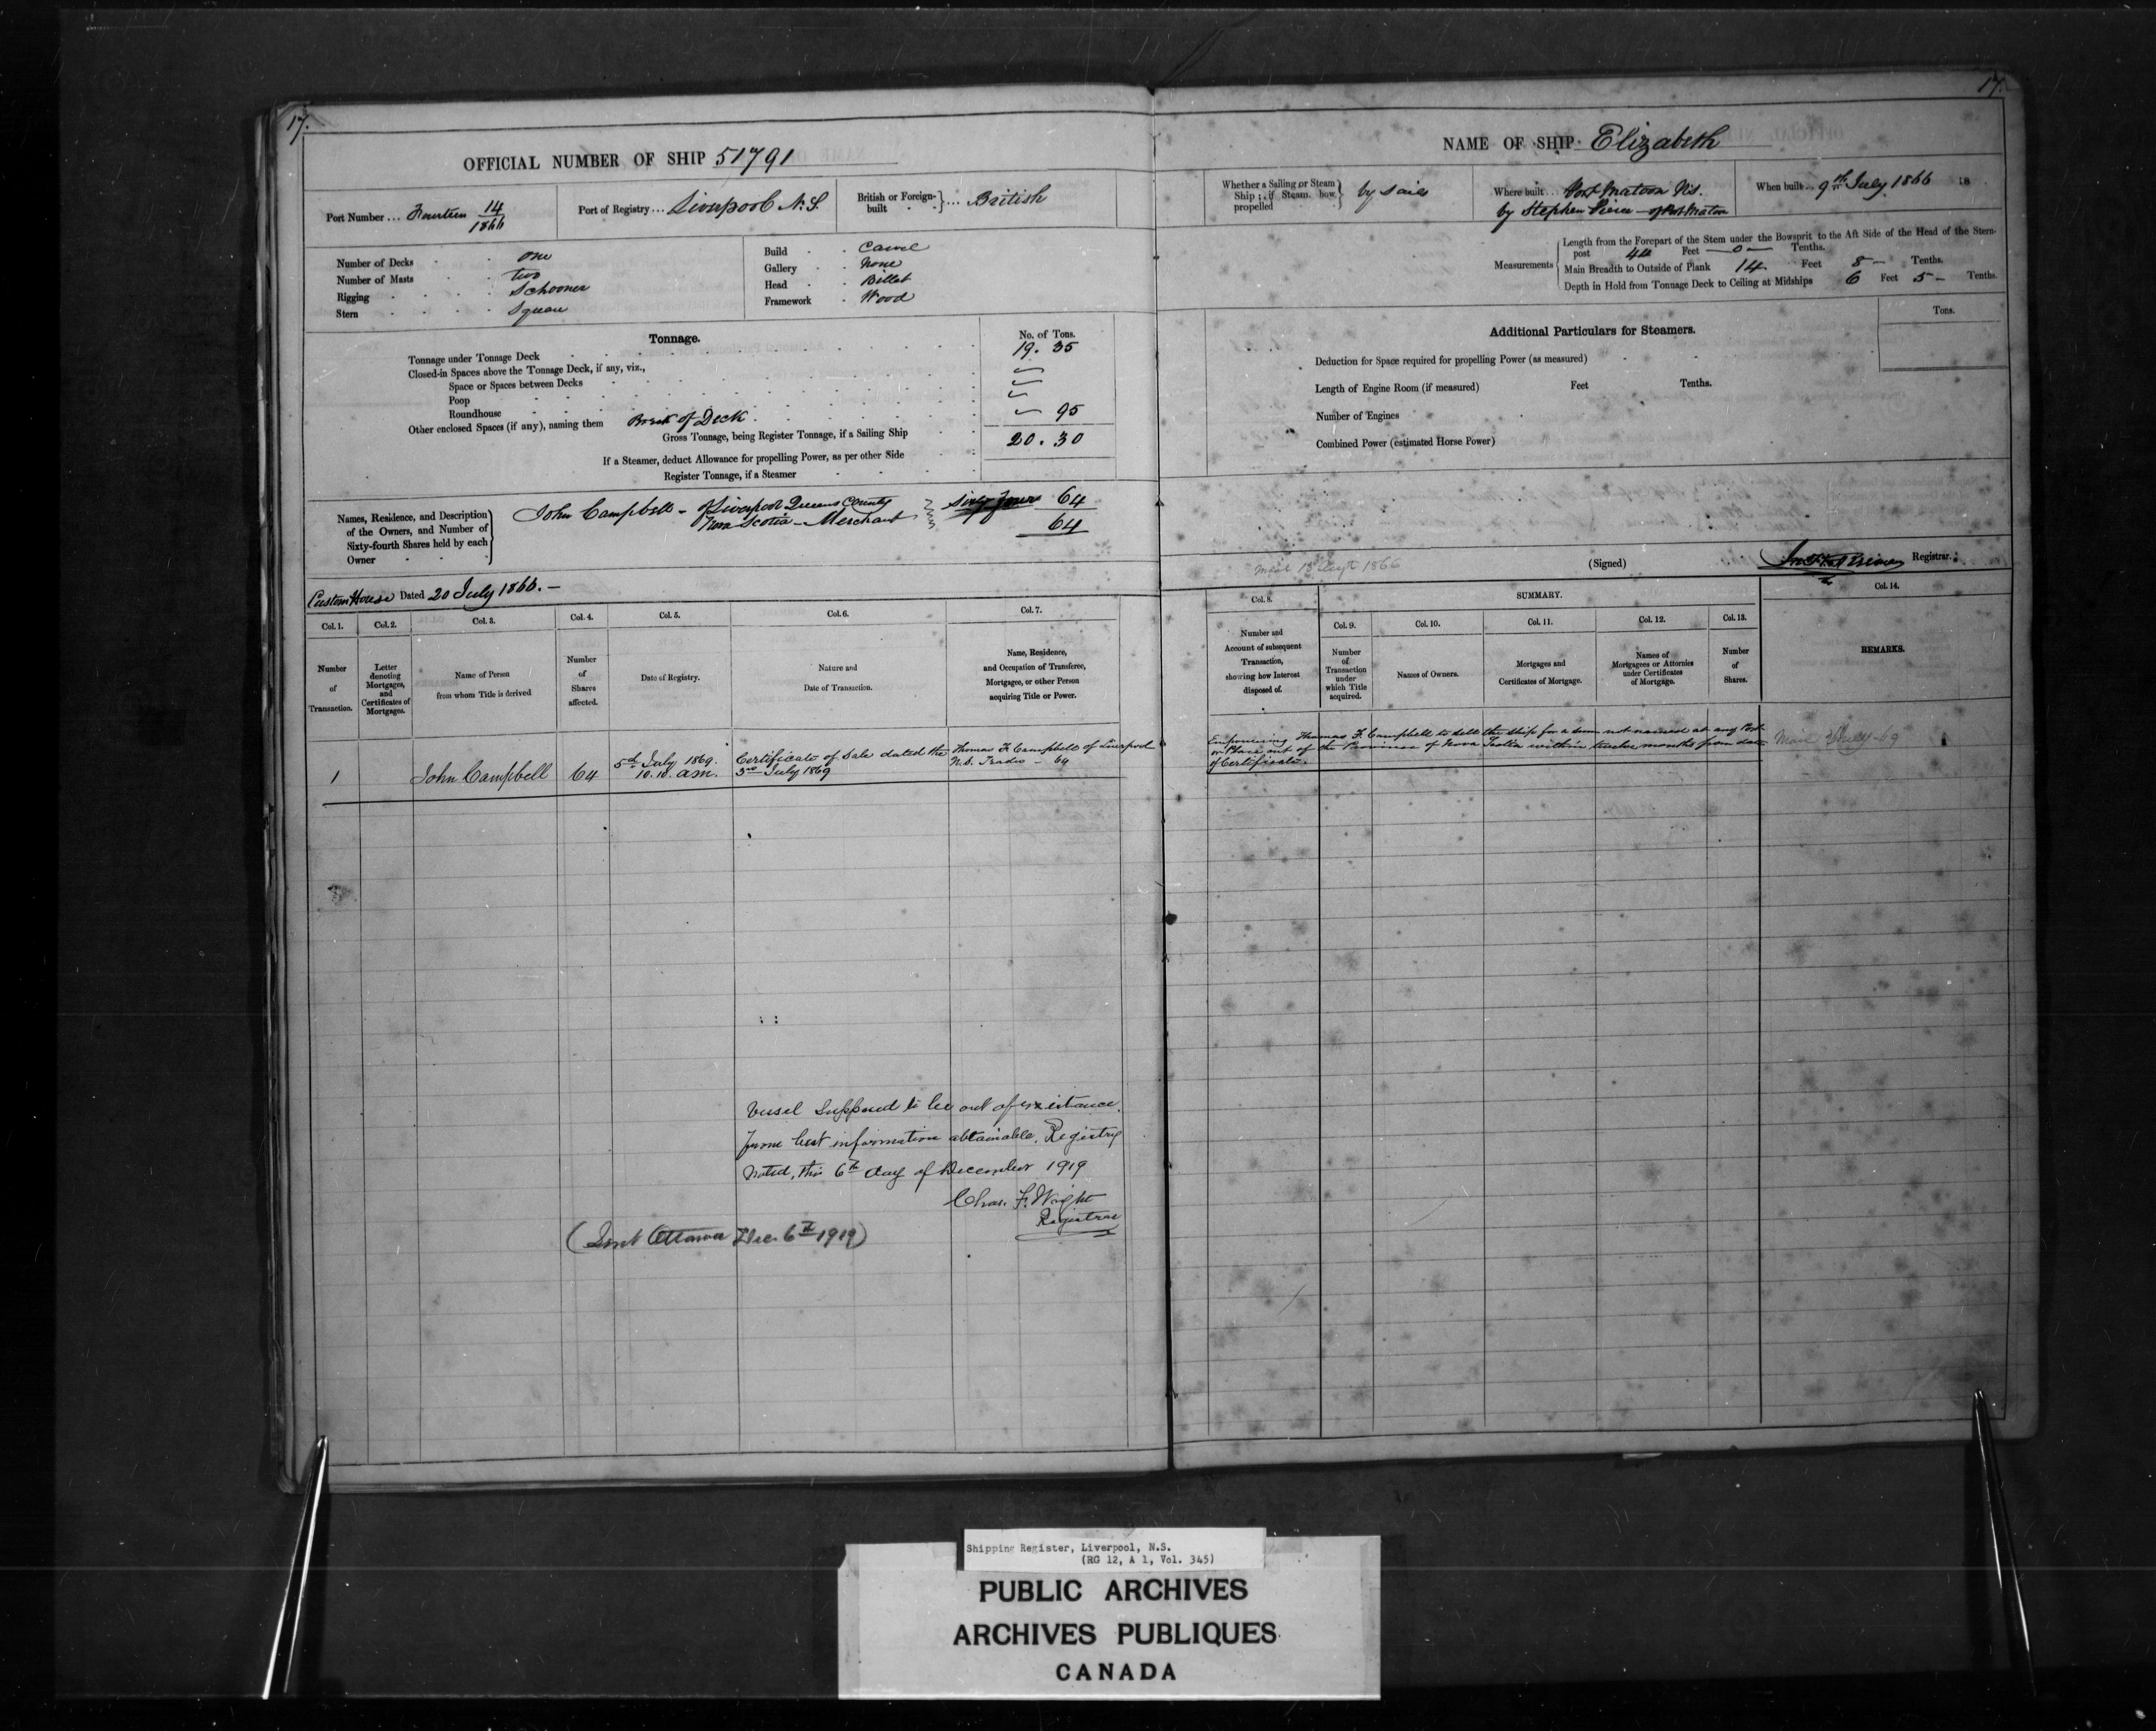 17.
OFFICIAL NUMBER OF SHIP 51791
Port Number ... Fourteen 14/1866
Port of Registry ... Liverpool N.S.
British or Foreign-built ... British
Number of Decks . . one
Number of Masts . . two
Rigging . . . . Schooner
Stern . . . . Square
Build . . Carvel
Gallery . . None
Head . . Billet
Framework . Wood
Tonnage.
No. of Tons.
Tonnage under Tonnage Deck 19. 35
Closed-in Spaces above the Tonnage Deck, if any, viz.,
Space or Spaces between Decks
Poop
Roundhouse
Other enclosed Spaces (if any), naming them Break of Deck 95
Gross Tonnage, being Register Tonnage, if a Sailing Ship 20. 30
If a Steamer, deduct Allowance for propelling Power, as per other Side
Register Tonnage, if a Steamer
Names, Residence, and Description
of the Owners, and Number of
Sixty-fourth Shares held by each
Owner
John Campbell - of Liverpool Queens County
Nova Scotia - Merchant
Sixty four 64
64
Custom House Dated 20 July 1866. -
Col. 1. Col. 2. Col. 3. Col. 4. Col. 5. Col. 6. Col. 7.
Number of Transaction.
Letter denoting Mortgages, and Certificates of Mortgages.
Name of Person from whom Title is derived
Number of Shares affected.
Date of Registry.
Nature and Date of Transaction.
Name, Residence, and Occupation of Transferee, Mortgagee, or other Person acquiring Title or Power.
1 John Campbell 64
5th July 1869.
10.10. am.
Certificate of Sale dated the
3rd July 1869
Thomas F. Campbell of Liverpool
N.S. Trader - 64
Vessel Supposed to be out of existance.
From best information obtainable. Registry
Noted, this 6th day of December 1919
Chas. F. Wright
Registrar
(Sent Ottawa Dec. 6th 1919)
17.
NAME OF SHIP Elizabeth
Whether a Sailing or Steam Ship ; if Steam, how propelled
by sails
Where built ... Port Matoon N.S.
by Stephen Pierce - of Port Matoon
When built ... 9th July 1866 18
Measurements
Length from the Forepart of the Stem under the Bowsprit to the Aft Side of the Head of the Stern-
post 44 Feet - 0 - Tenths.
Main Breadth to Outside of Plank 14 Feet 8 - Tenths.
Depth in Hold from Tonnage Deck to Ceiling at Midships 6 Feet 5 - Tenths.
Additional Particulars for Steamers.
Tons.
Deduction for Space required for propelling Power (as measured)
Length of Engine Room (if measured) Feet Tenths.
Number of Engines
Combined Power (estimated Horse Power)
1866
(Signed) Registrar.
Col. 8. SUMMARY. Col. 14.
Col. 9. Col. 10. Col. 11. Col. 12. Col. 13.
Number and Account of subsequent Transaction, showing how Interest disposed of.
Number of Transaction under which Title acquired.
Names of Owners.
Mortgages and Certificates of Mortgage.
Names of Mortgagees or Attornies under Certificates of Mortgage.
Number of Shares.
REMARKS.
Empowering Thomas F. Campbell to sell the ship for a sum not named at any Port
or Place out of the Province of Nova Scotia within twelve months from date
of Certificate.
Shipping Register, Liverpool, N.S.
(RG 12, A 1, Vol. 345)
PUBLIC ARCHIVES
ARCHIVES PUBLIQUES
CANADA